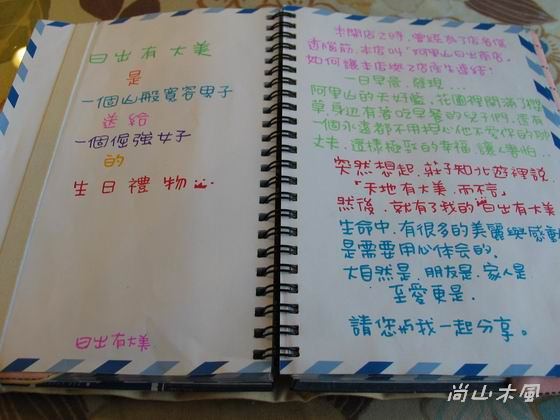 日出有大美
是
一個山般寬容男子
送給
一個倔強女子
的
生日禮物
日出有大美
未開店之時,曾經為了店名傷
透腦筋,本店叫「阿里山日出茶店」
如何讓本店與2店產生連結
一日早晨,發現…
阿里山的天好藍,花園裡開滿了櫻
草,身邊有著吃早餐的兒子們,還有
一個永遠都不用擔心他不愛你的別
丈夫,這樣極致的幸福,讓人害怕…
突然想起,莊子知北遊裡說
「天地有大美,而不言」
然後,就有了我的"日出有大美
生命中,有很多的美麗與感動
是需要用心体会的.
大自然是,朋友是,家人是
至愛更是.
請您和我一起分享。
尚山木風